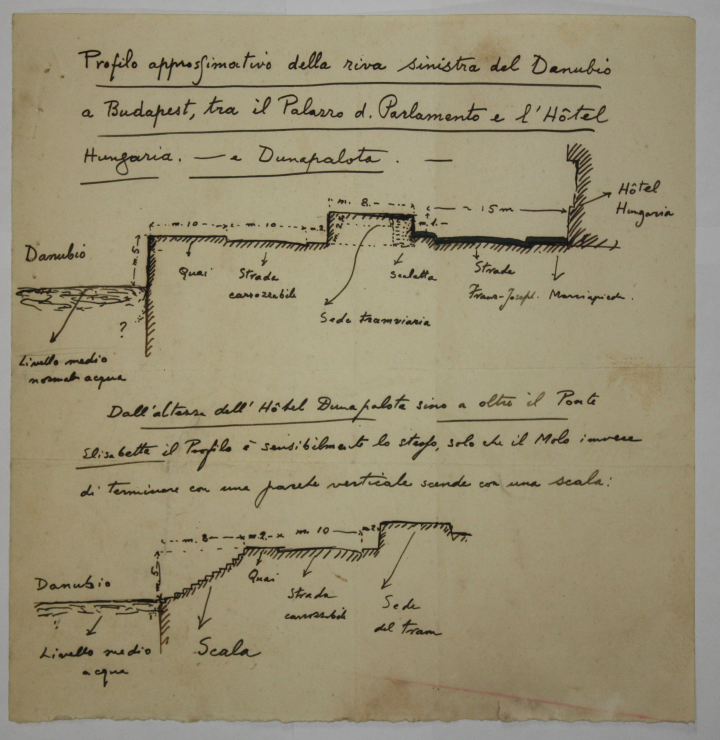 Profilo approssimativo della riva sinistra del Danubio
a Budapest, tra il Palazzo d. Parlamento e l'Hôtel
Hungaria. — e Dunapalota. —
m. 8.
m. 10 m. 10 m. 2
~ 15 m
Hôtel
Hungaria
Danubio
m 5
Quai
Strada
carrozzabile
scaletta
Strada
Franz-Joseph.
Marciapiede.
Sede tramviaria
?
Livello medio
normale acqua
Dall'altezza dell'Hôtel Dunapalota sino a oltre il Ponte
Elisabetta il Profilo è sensibilmente lo stesso, solo che il Molo invece
di terminare con una parete verticale scende con una scala:
m. 8 m. 2. m. 10 m 2
m 5
Danubio
Quai
Strada
carrozzabile
Sede
del tram
Livello medio
acqua
Scala